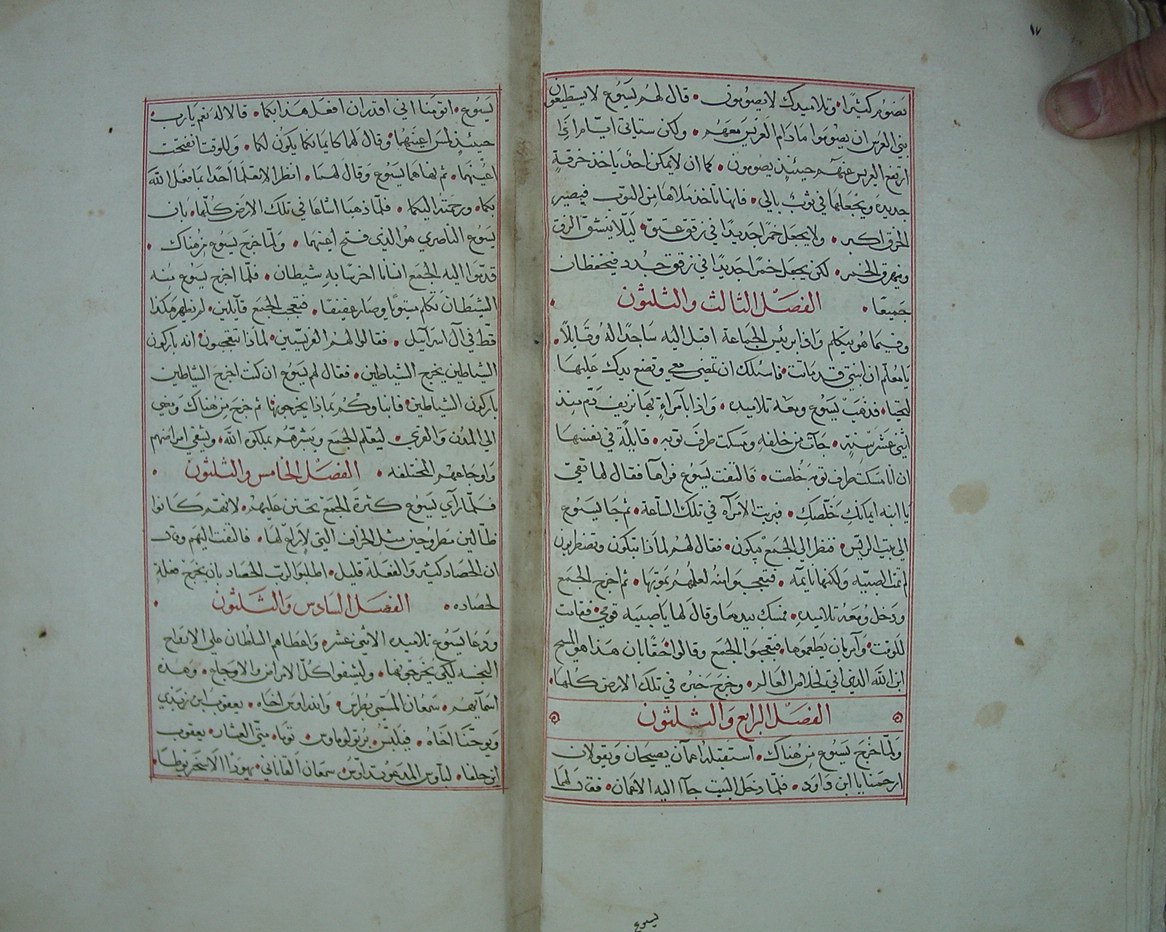 ١٧
نصوم كثيرًا وتلاميدك لا يصومون • قال لهم يسوع لا يستطيعون
بني العرس ان يصوموا مادام العريس معهم • ولكن ستاتي ايام اذا
ارتفع العريس عنهم حينيذٍ يصومون • كما ان لا يمكن احدٌ ياخذ خرقةٍ
جديده ويجعلها في ثوب بالي • فانها تاخذ ملاها من الثوب فيصير
الخرق اكبر • ولا يجعل خمرًا جديدًا في زقوق عتق • ليلا ينشق الزق
ويهرق الخمر • لكن يجعل خمرًا جديدًا في زقوق جدد فيحفظان
جميعًا • الفصل الثالث والثلثون
وفيما هو يتكلم واذا برئيس الجماعة اقبل اليه ساجدًا له وقايلاً •
يا معلم ان ابنتي قد ماتت • فاسئلك ان تمضي معي وتضع يدك عليها
لتحيا • فذهب يسوع ومعه تلاميده • واذا بامرأةٍ بها نزيف دم منذ
اثني عشر سنةٍ • جآت من خلفهِ ومسكت طرف ثوبه • قايلة في نفسها
ان انا مسكت طرف ثوبهِ خلصت • فالتفت يسوع فرآها فقال لها ثقي
يا ابنه ايمانك خلصك • فبريت الامرأه في تلك الساعة • ثم جا يسوع
الي بيت الريس • فنظر الي الجمع يبكون • فقال لهم لماذا تبكون وتضطربون
لم تمت الصبيه ولكنها نايمه • فتعجبوا منه لعلمهم بموتها • ثم اخرج الجمع
ودخل ومعه تلاميدهِ • فمسك بيدها وقال لها يا صبيه قومي فقامت
للوقت • وآمر بان يطعموها • فتعجبوا الجمع وقالوا حقًا بان هذا هو المسيح
ابن الله الذي اتي لخلاص العالم • وخرج خبره في تلك الارض كلها •
الفصل الرابع والثلثون
ولما خرج يسوع من هناك • استقبله اعمآن يصيحان ويقولان
ارحمنا يا ابن داود • فلما دخل البيت جآا اليه الاعمان • فقال لهما
يسوع
يسوع • اتومنا اني اقدر ان افعل هذا بكما • قالا له نعم يا رب •
حينيذٍ لمس اعينهما وقال لهما كايمانكما يكون لكما • وللوقت انفتحت
اعينهما • ثم نهاهما يسوع وقال لهما • انظرا لا تعلما احدا بما فعل الله
بكما • ورحمته اليكما • فلما ذهبا اشاعا في تلك الارض كلها • بان
يسوع الناصري هو الذي فتح اعينهما • ولما خرج يسوع من هناك •
قدموا اليه الجمع انسانًا اخرسًا بهِ شيطان • فلما اخرج يسوع منه
الشيطان تكلم سويًا وصار عفيفًا • فتعجب الجمع قآيلين • لم نظهر هكذا
قط في آل اسرآيل • فقالوا لهم الفريسيين • لماذا تتعجبون • انه باركون
الشياطين يخرج الشياطين • فقال لهم يسوع ان كنت اخرج الشاطين
باركون الشياطين • فابناوكم بماذا يخرجونها • ثم خرج من هناك ومضي
الي المدن والقري • ليعلم الجمع ويبشرهم بملكوت الله • وليشفي امراضهم
واوجاعهم المختلفه • الفصل الخامس والثلثون •
فلما رآي يسوع كثرة الجمع تحنن عليهم • لانهم كانوا
ضالين مطروحين مثل الخراف التي لا راعٍ لها • فالتفت اليهم وقال
ان الحصاد كثير والفعلة قليل • اطلبوا لرب الحصاد بان يخرج فعلة
لحصاده • الفصل السادس والثلثون •
ودعا يسوع تلاميده الاثني عشر • واعطاهم السلطان علي الارواح
النجسه لكي يخرجونها • وليشفوا كل الامراض والاوجاع • وهذه
اسمآيهم • سمعان المسمي بطرس • واندراوس اخاه • يعقوب ابن زبدي
ويوحنا اخاه • فيلبس • برتولوماوس • توما • متي العشار • يعقوب
ابن حلفا • لباوس المدعو تداوس • سمعان القاناني • يهوذا الاسخريوطا •